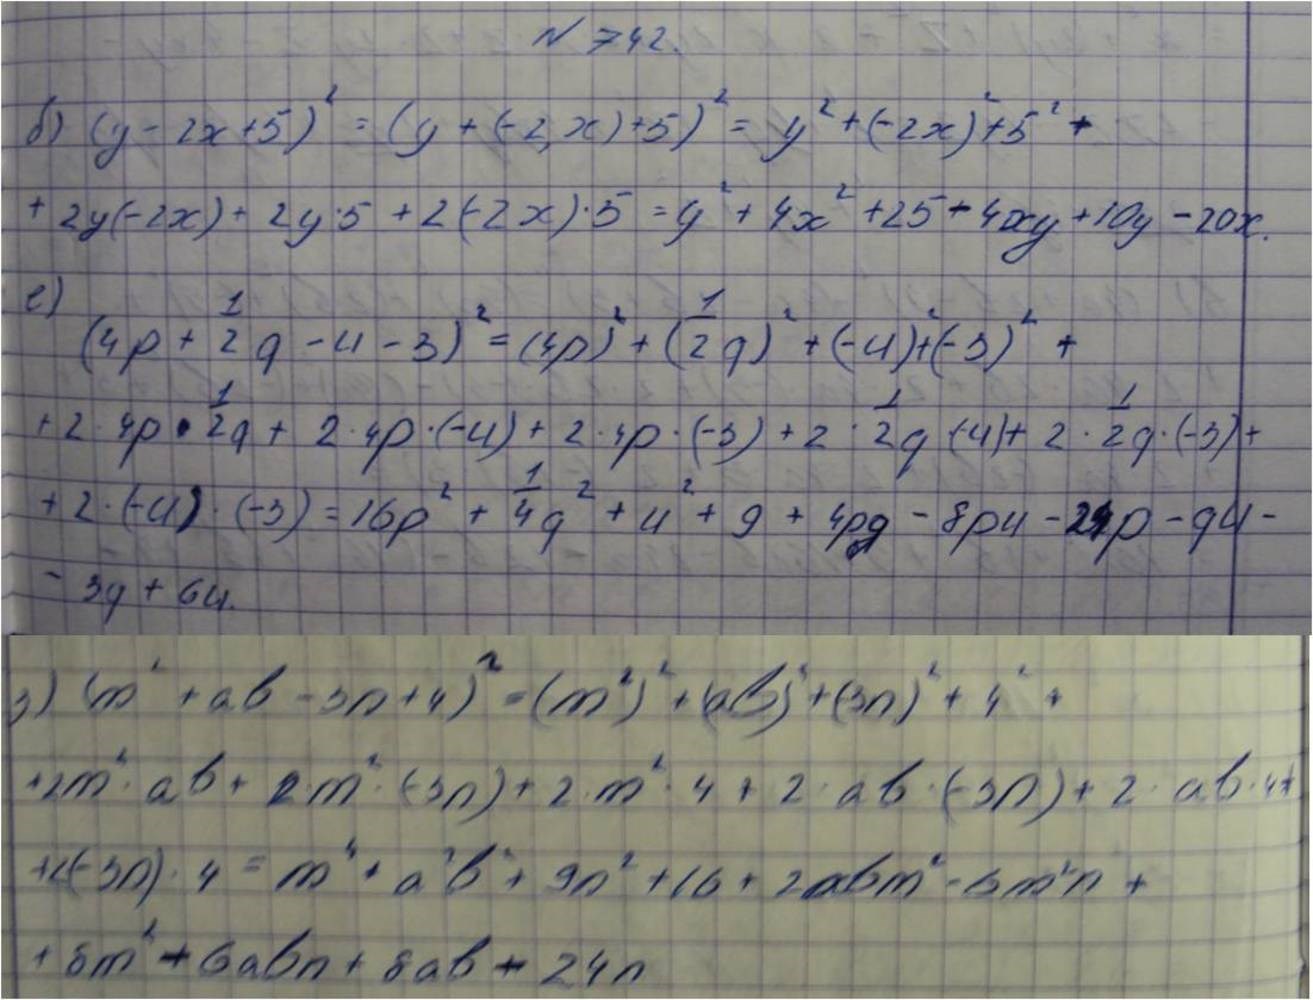 N 742.
б) (y - 2x + 5)² = (y + (-2x) + 5)² = y² + (-2x)² + 5² +
+ 2y(-2x) + 2y·5 + 2(-2x)·5 = y² + 4x² + 25 - 4xy + 10y - 20x.
е) (4p + 1/2q - u - 3)² = (4p)² + (1/2q)² + (-u)² + (-3)² +
+ 2·4p·1/2q + 2·4p·(-u) + 2·4p·(-3) + 2·1/2q·(-u) + 2·1/2q·(-3) +
+ 2·(-u)·(-3) = 16p² + 1/4q² + u² + 9 + 4pq - 8pu - 24p - qu -
- 3q + 6u.
з) (m² + ab - 3n + 4)² = (m²)² + (ab)² + (3n)² + 4² +
+ 2m²·ab + 2·m²·(-3n) + 2·m²·4 + 2·ab·(-3n) + 2·ab·4 +
+ 2(-3n)·4 = m⁴ + a²b² + 9n² + 16 + 2abm² - 6m²n +
+ 8m² - 6abn + 8ab - 24n